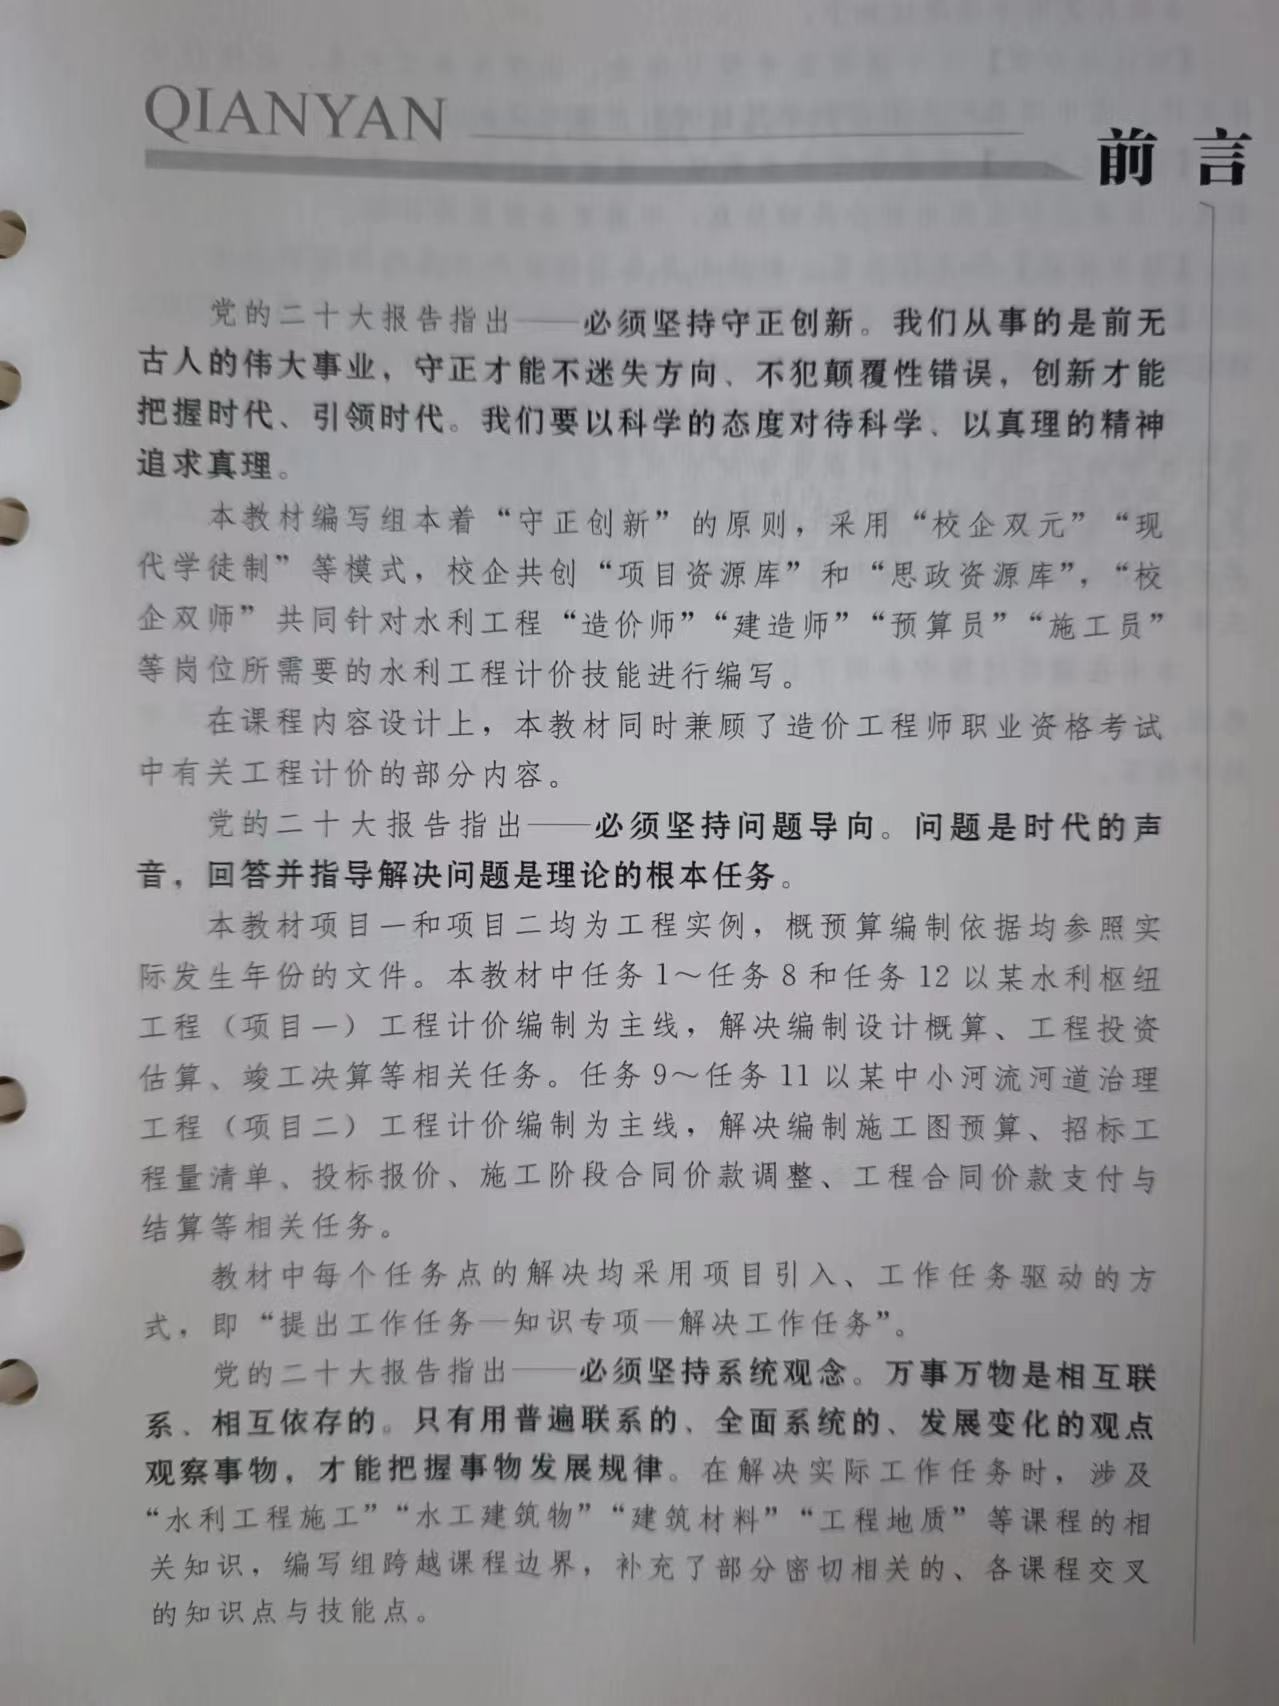 QIANYAN
前言
党的二十大报告指出——必须坚持守正创新。我们从事的是前无
古人的伟大事业，守正才能不迷失方向、不犯颠覆性错误，创新才能
把握时代、引领时代。我们要以科学的态度对待科学、以真理的精神
追求真理。
本教材编写组本着“守正创新”的原则，采用“校企双元”“现
代学徒制”等模式，校企共创“项目资源库”和“思政资源库”，“校
企双师”共同针对水利工程“造价师”“建造师”“预算员”“施工员”
等岗位所需要的水利工程计价技能进行编写。
在课程内容设计上，本教材同时兼顾了造价工程师职业资格考试
中有关工程计价的部分内容。
党的二十大报告指出——必须坚持问题导向。问题是时代的声
音，回答并指导解决问题是理论的根本任务。
本教材项目一和项目二均为工程实例，概预算编制依据均参照实
际发生年份的文件。本教材中任务1～任务8和任务12以某水利枢纽
工程（项目一）工程计价编制为主线，解决编制设计概算、工程投资
估算、竣工决算等相关任务。任务9～任务11以某中小河流河道治理
工程（项目二）工程计价编制为主线，解决编制施工图预算、招标工
程量清单、投标报价、施工阶段合同价款调整、工程合同价款支付与
结算等相关任务。
教材中每个任务点的解决均采用项目引入、工作任务驱动的方
式，即“提出工作任务—知识专项—解决工作任务”。
党的二十大报告指出——必须坚持系统观念。万事万物是相互联
系、相互依存的。只有用普遍联系的、全面系统的、发展变化的观点
观察事物，才能把握事物发展规律。在解决实际工作任务时，涉及
“水利工程施工”“水工建筑物”“建筑材料”“工程地质”等课程的相
关知识，编写组跨越课程边界，补充了部分密切相关的、各课程交叉
的知识点与技能点。